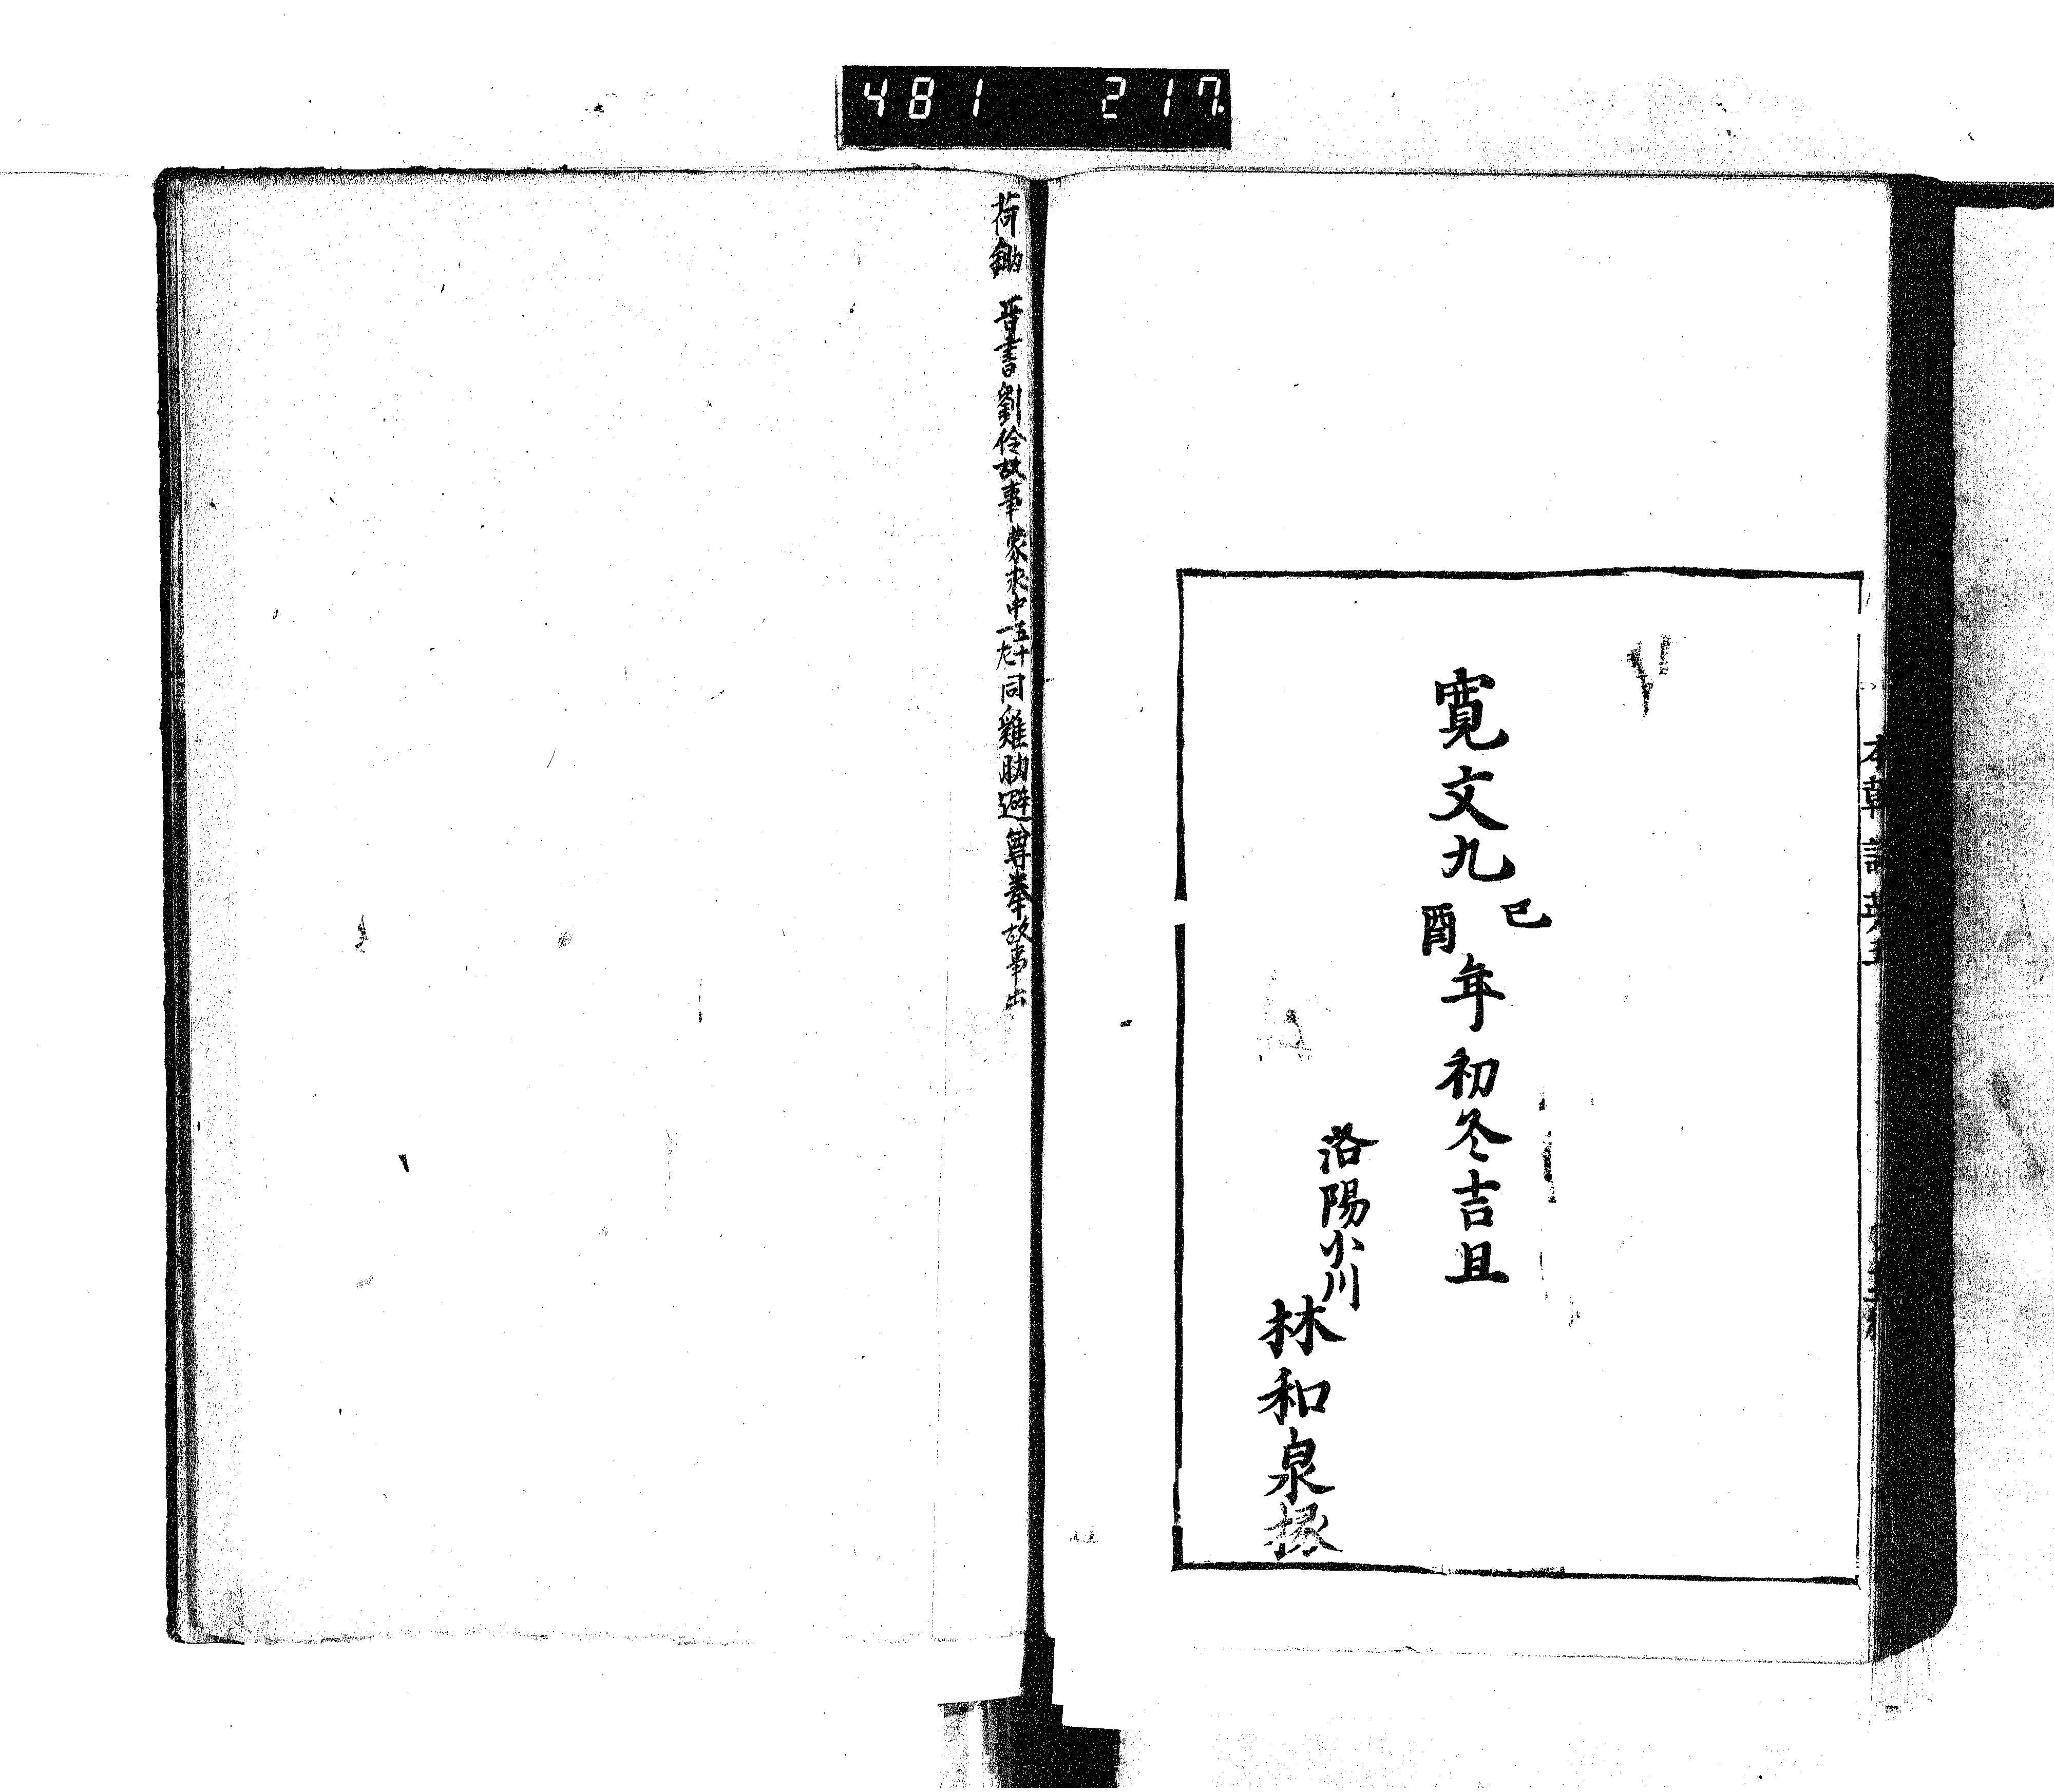 481 217
寛文九己酉年初冬吉且
洛陽小川
林和泉掾
荷鋤 晋書劉伶故事蒙求中五十一左同雞肋避尊拳故事出